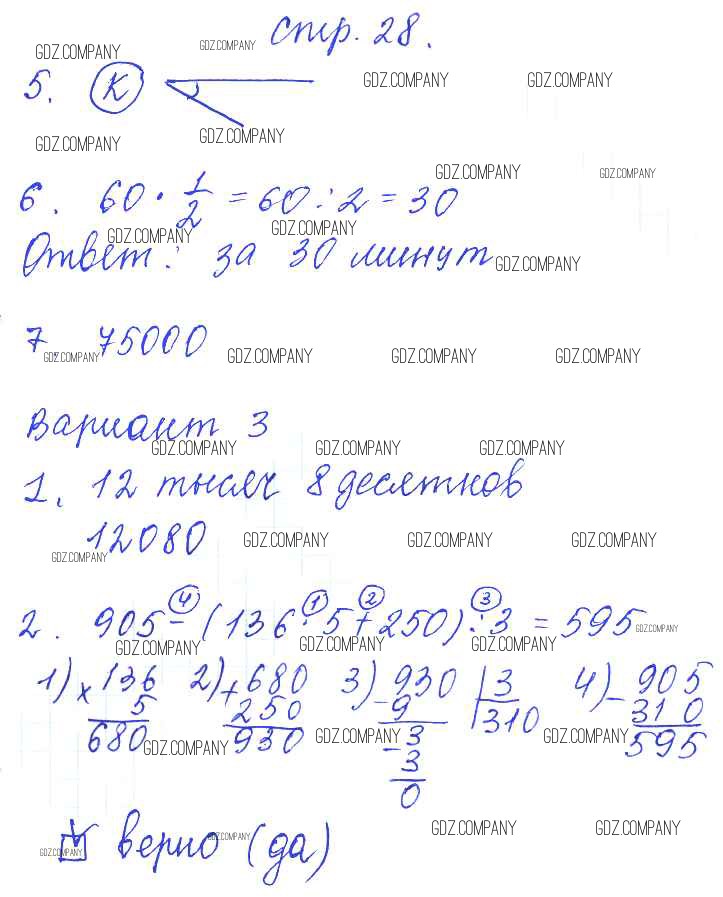 стр. 28.
GDZ.COMPANY GDZ.COMPANY
5. К GDZ.COMPANY GDZ.COMPANY
GDZ.COMPANY GDZ.COMPANY
GDZ.COMPANY GDZ.COMPANY
6. 60 · 1/2 = 60 : 2 = 30
GDZ.COMPANY GDZ.COMPANY
Ответ: за 30 минут GDZ.COMPANY
7. 75000
GDZ.COMPANY GDZ.COMPANY GDZ.COMPANY GDZ.COMPANY
Вариант 3
GDZ.COMPANY GDZ.COMPANY GDZ.COMPANY
1. 12 тысяч 8 десятков
12080 GDZ.COMPANY GDZ.COMPANY GDZ.COMPANY
GDZ.COMPANY
4 1 2 3
2. 905 - (136 · 5 + 250) : 3 = 595 GDZ.COMPANY
GDZ.COMPANY GDZ.COMPANY GDZ.COMPANY
1) × 136 2) + 680 3) - 930 3 4) - 905
5 250 9 310 310
680 GDZ.COMPANY 930 GDZ.COMPANY - 3 GDZ.COMPANY 595
3
0
верно (да) GDZ.COMPANY GDZ.COMPANY GDZ.COMPANY
GDZ.COMPANY